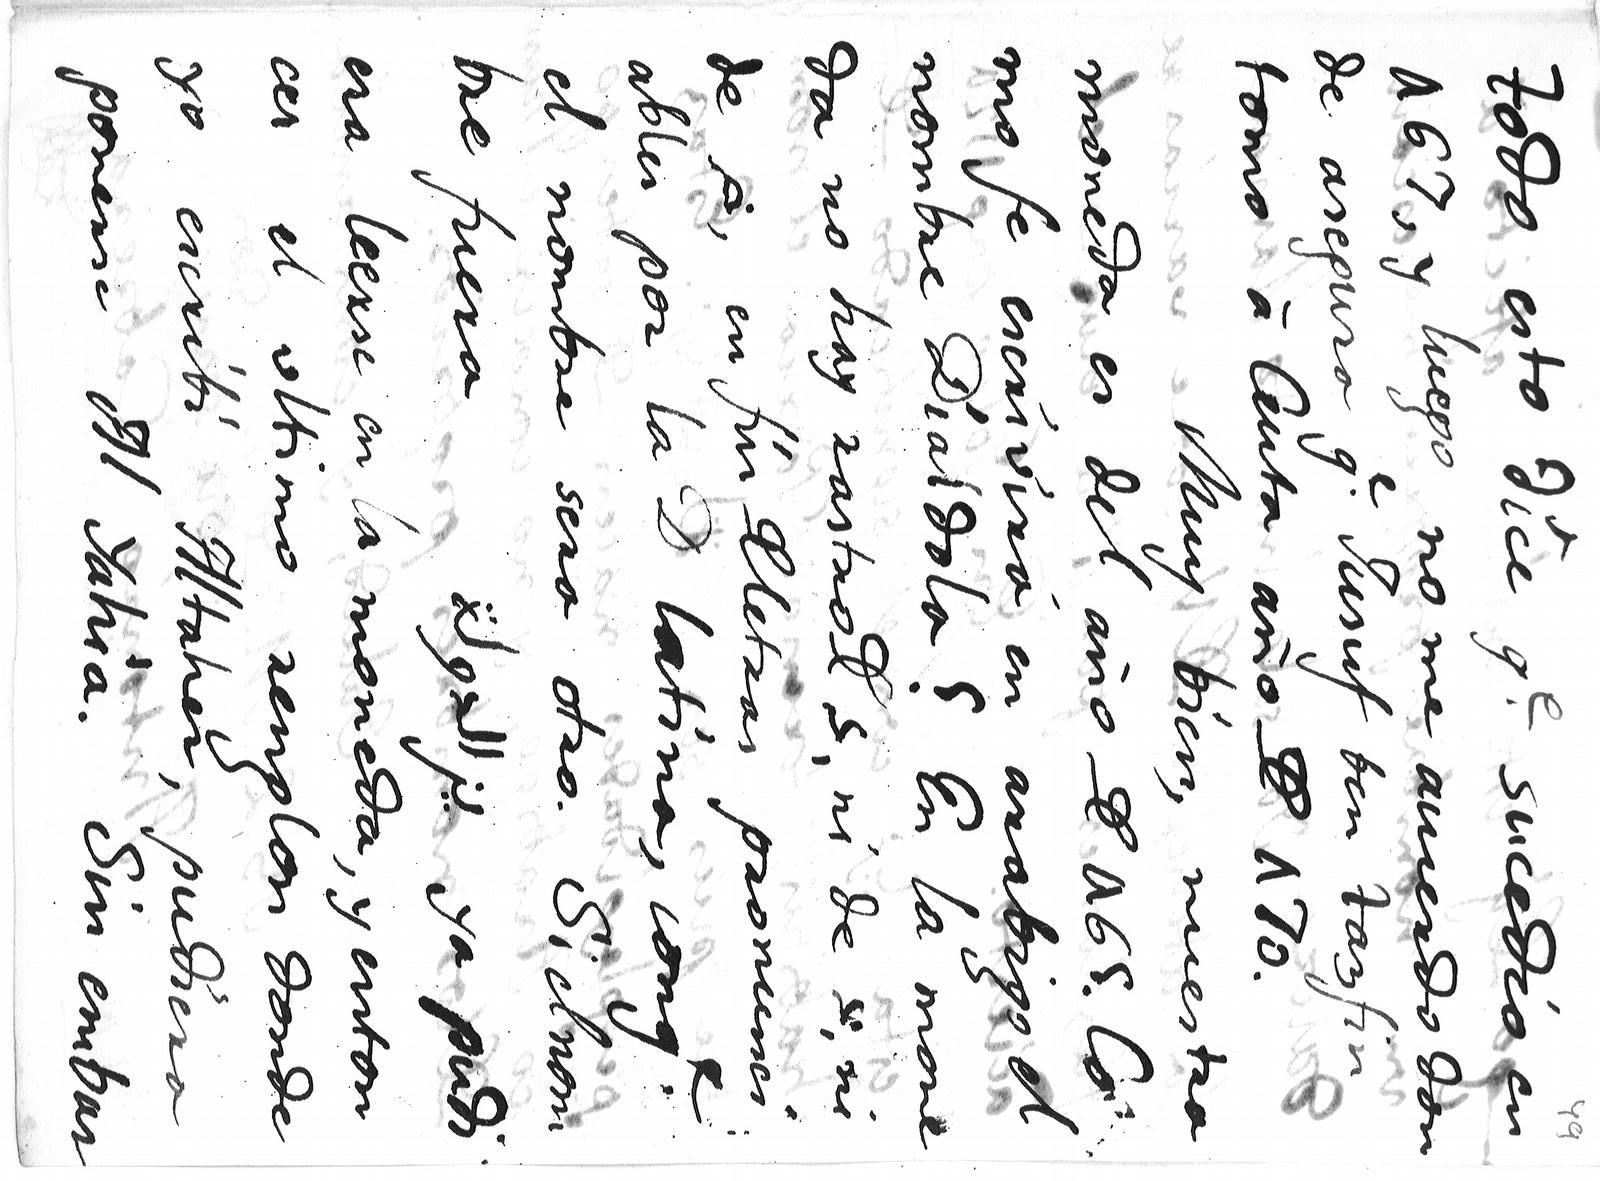 49
Todo esto dice q.e sucedio en
1067, y luego no me acuerdo don
de aseguro q.e Jusuf ben Taxfin
tomo à Ceuta año 1070.
Muy bien, nuestra
moneda es del año 1065. Co:
mo se escrivirá en arabigo el
nombre Dialdola? En la mone
da no hay rastro de د, ni de ذ, ni
de ض, en fin letras pronunci:
ables por la D latina, con q.e
el nombre sera otro. Si el nom
bre fuera ya pudi:
era leerse en la moneda, y enton
ces el ultimo renglon donde
yo escribi Altaher, pudiera
ponerse Al Yahia. Sin embar